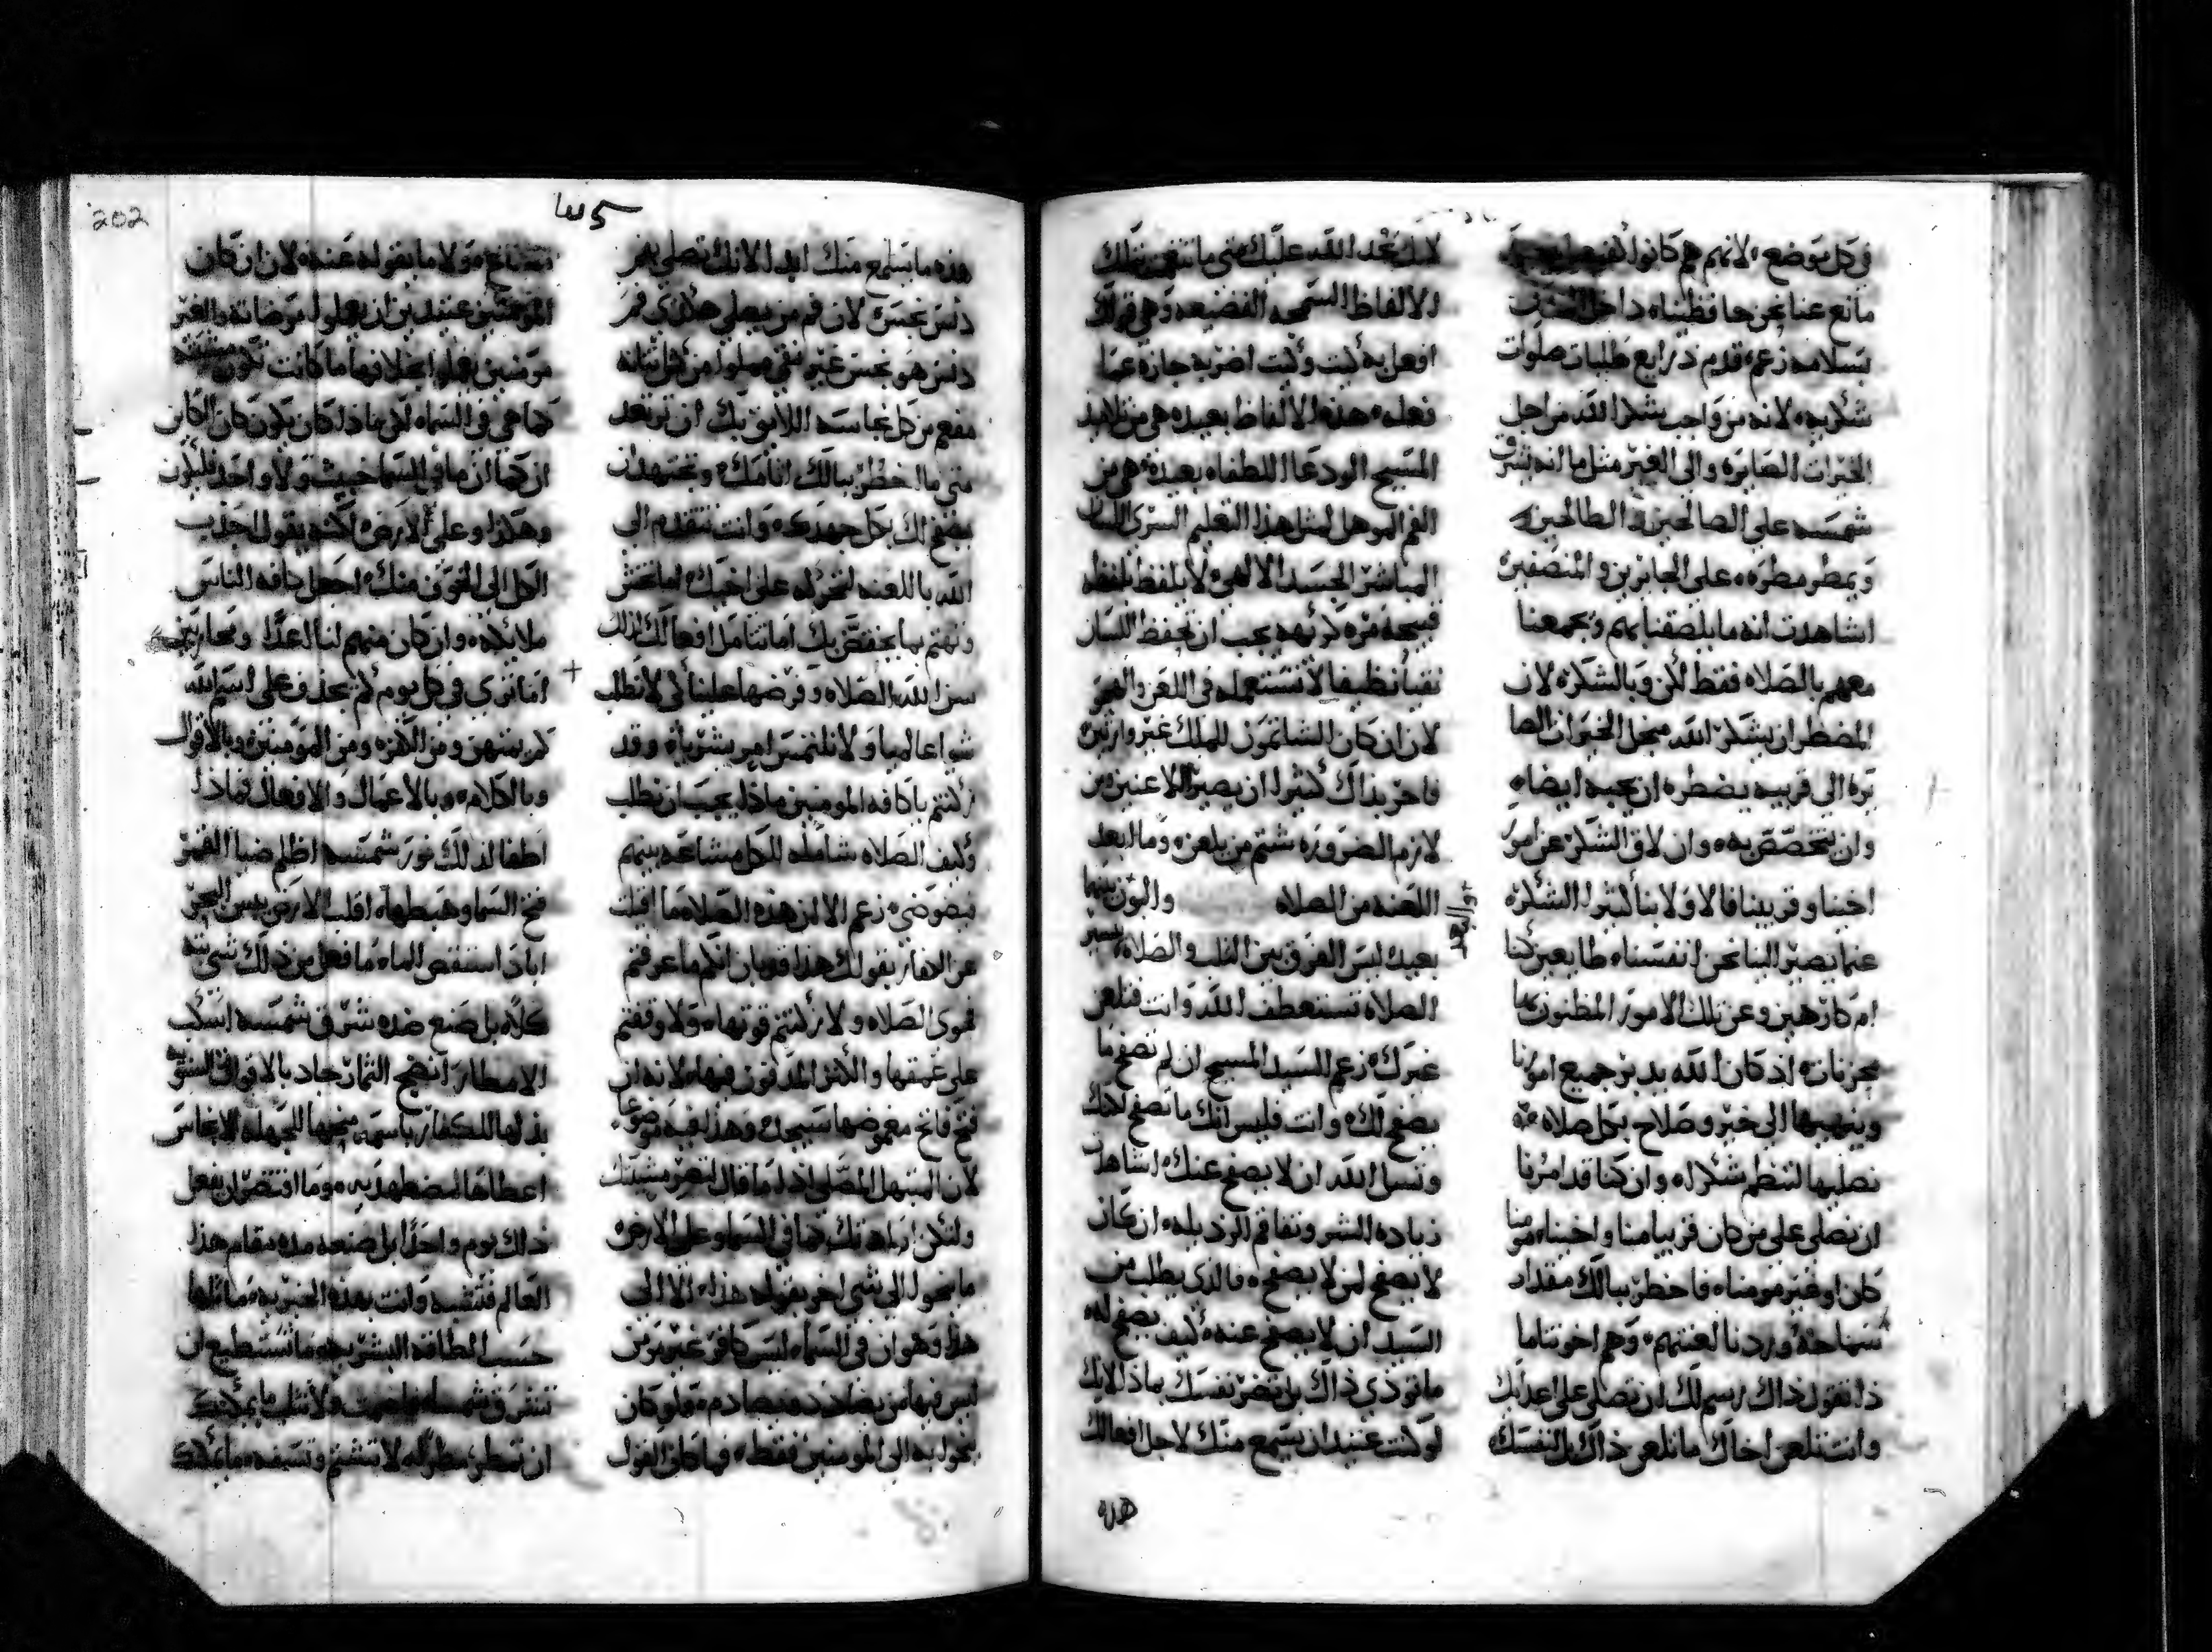 في كل موضع الانهم هم كانوا
مانع عنا نحن حافظيناه داخل
بسلامه زعم قدم ذرايع طلبات صلوات
شكريه لانه من واجب يشكر الله من اجل
الخيرات الصايره والى الغير مثل ما انه يشرق
شمسه على الصالحين والطالحين
ويمطر مطره على الجايرين والمنصفين
اشاهدت انه ما يلصقنا بهم ويجمعنا
معهم بالصلاه فقط لكن وبالشكر لان
المضطر ان يشكر الله من اجل الخيرات الصا
يره الى قريبه يضطره ان يحبه ايضا
وان يتخصص به وان لاق الشكر عن امور
اخينا وقريبنا فالاولا بنا كثيرا الشكر
عما يصير الينا نحن انفسنا طايعين كنا
ام كارهين وعن تلك الامور المظنون بها
محزنات اذ كان الله يدبر جميع امورنا
وينهيها الى خير وصلاح بكل صلاه
نصليها لتنظم شكرا له وان كنا قد امرنا
ان نصلي على من كان قريبا منا واخينا مومنا
كان او غير مومنا فاخطر ببالك مقدار
سماحة وردنا لعنتهم وهم اخوتنا ما
ذا تقول ذاك رسم لك ان تصلي على اعدايك
وانت تلعن اخاك ما تلعن ذاك بل نفسك
لانك تحد الله عليك متى ما تتفوه بتلك
الالفاظ السمجه الفضيعه وهي قولك
افعل به كيت وكيت اضربه جازه عما
فعله هذه الالفاظ بعيده هي من تلاميذ
المسيح الودعا اللطفاء بعيده هي من
الفم الموهل لمثل هذا التعليم السري اللسان
المباشر الجسد الالهي لا يلفظ بلفظه
قبيحة مره كريهه يجب ان نحفظ اللسان
نقيا نظيفا لا نستعمله في اللعن والهجر
لان ان كان الشاتمون للملك غير وارثين
فاحر بذاك كثيرا ان يصير اللاعنين من
لازم الضروره شتم من يلعن وما ابعد
اللعنه من الصلاه والبون بينهما
بعيد ليس الفرق بين الثلب والصلاه يسير
الصلاه تستعطف الله وانت فتلعن
غيرك زعم السيد المسيح ان لم تصفح ما
يصفح لك وانت فليس انك ما تصفح لكنك
وتسل الله ان لا يصفح عنك اشاهدت
زياده الشر وتفاقم الرذيله ان كان
لا يصفح لمن لا يصفح فالذي يطلب من
السيد ان لا يصفح عنه كيف يصفح له
ما توذي ذاك بل تضر نفسك بماذا لانك
لو كنت عتيدا ان يسمع منك لاجل افعالك
هذه
هذه ما يسمع منك ابدا لانك تصلي بفم
دنس نجس لان فم من يصلي هكذي فم
دنس هو نجس غير نقي مملوا من كل نتانه
مفعم من كل نجاسه اللايق بك ان ترتعد
متى ما اخطر ببالك اثامك وتجتهد ان
يصفح لك بكل جهدك وانت تتقدم الى
الله باللعنه لتحركه على اخيك اما تخشى
وتهتم بما يختص بك اما تتامل افعالك لذلك
سن الله الصلاه وفرضها علينا لكي لا نطلب
شيوا عالميا ولا نلتمس امر بشريا وقد
ركنتم يا كافه المومنين ماذا يجب ان نطلب
وكيف الصلاه شامله للكل مشاعه بينهم
معوضي زعم الا ان هذه الصلاه ما اقيلت
عن الكفار بقولك هذا فيبان انكم ما عرفتم
فحوى الصلاه ولا ركنتم قوتها ولا وقفتم
على عمقها والكنز المدفون فيها لانه ان
فتح فاتح مغموضها سيجد وهذا فيه موضوعا
لان المبتهل المصلي اذا ما قال لتصر مشيتك
ولتكن ارادتك كما في السماء وعلى الارض
ما ينحوا الى شي اخر بقوله هذا الا الى
هذا وهو ان في السماء ليس كافر غير مومن
ليس فيها من يضادد ويصادم فلو كان
ينحوا به الى المومنين فقط فما كان القول
مستساغ ولا ما يقوله عنده لان ان كان
المومنين عتيدين ان يعملوا مرضاته والغير
مومنين يعملوا بخلافها ما كانت تكون مشيته
كما هي في السماء لكن ماذا كان يكون كان الكاين
ان كما ان ما في السماء خبيث ولا واحد فليكون
وهكذا وعلى الارض لكنه يقول اجذب
الكل الى الخوف منك اجعل كافه الناس
ملايكه وان كان منهم لنا اعدا ومحاربين
اما ترى في كل يوم كم يجدف على اسم الله
كم يمتهن ومن الكفره ومن المومنين وبالاقوال
وبالكلام وبالاعمال والافعال فماذا
اطفا لذلك نور شمسه اظلم ضيا القمر
فتح السما وهبطها اقلب الارض يبس البحر
اباد استنقص الماء ما فعل من ذلك شي بته
كلا بل صنع ضده شرق شمسه اسكب
الامطار انضج الثمار جاد بالاقوات السنويه
بذلها للكفار باسمه منحها للجهله الانجاس
اعطاها لمضطهديه وما اقتصر ان يفعل
ذلك يوم واحدا بل صنعه مده مقام هذا
العالم فتقبسه وانت بهذه الخيريه ماثلها
حسب الطاقه البشريه ما تستطيع ان
تشرق شمسا
ان تمطر مطرا لا تشتم وتسفه ما يمكنك